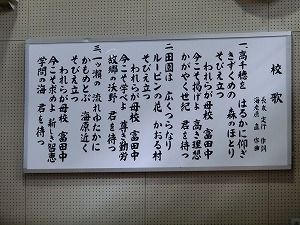 校歌
長友 定行 作詞
海老原 直 作曲
一、高千穂を はるかに仰ぎ
きずくめの 森のほとり
そびえ立つ
われらが母校 富田中
今こそ掲げよ 高き理想
かがやく世紀
二、田園は 広くつらなり
ルーピンの花 かおる村
そびえ立つ
われらが母校 富田中
今こそ学べよ 尊き勤労
故郷の沃野 君を待つ
三、一ッ瀬の 流れゆたかに
かもめとぶ 海原近く
そびえ立つ
われらが母校 富田中
今こそ求めよ 新しき智恵
学問の海 君を待つ